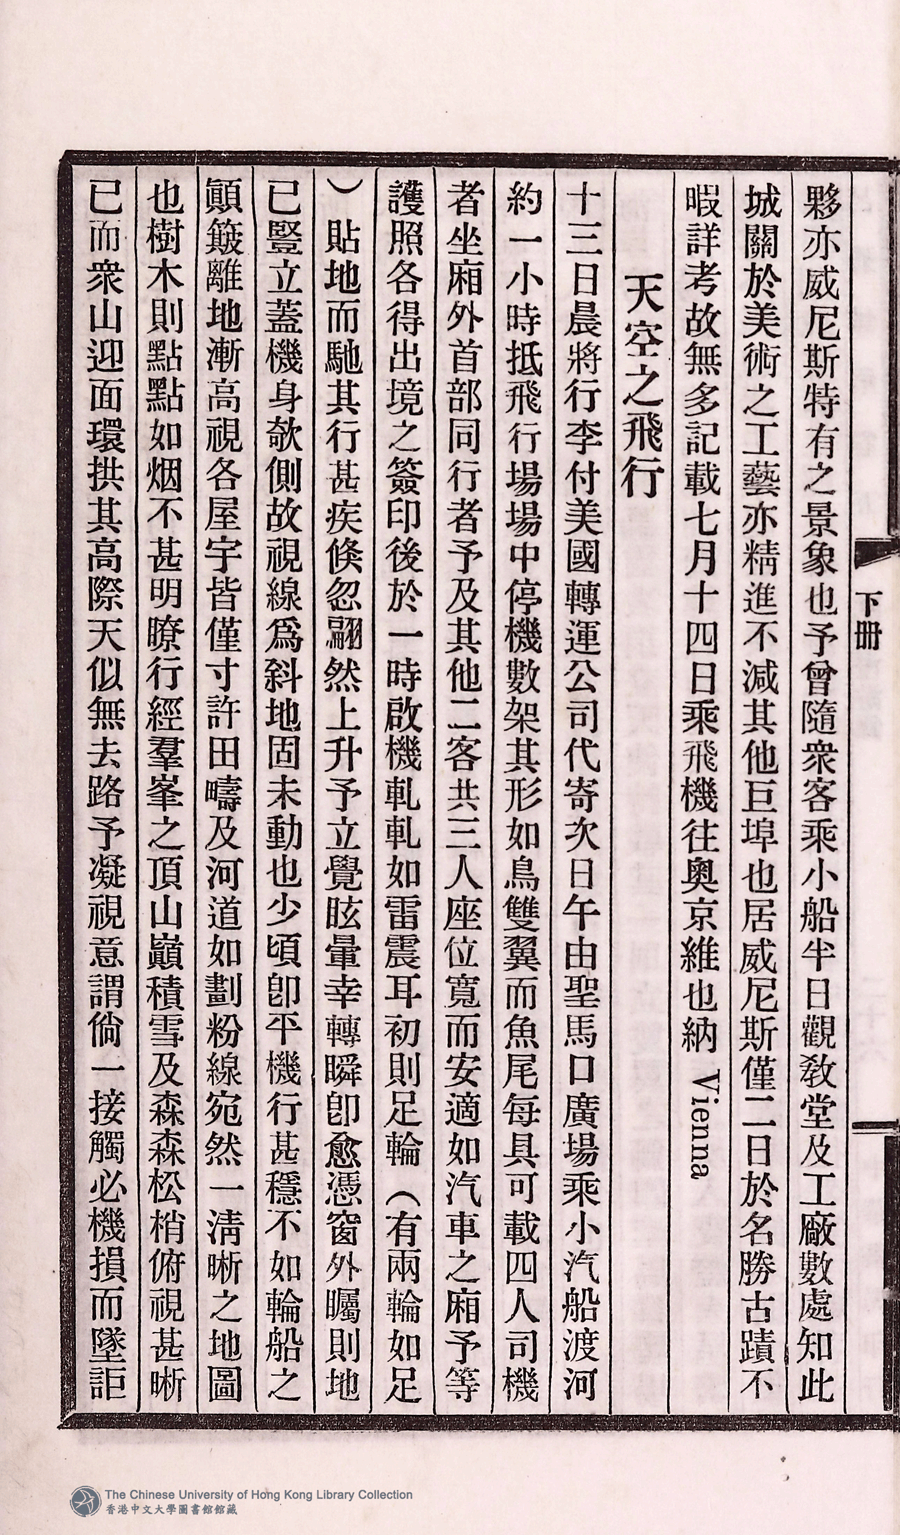 下册
夥亦威尼斯特有之景象也予曾隨衆客乘小船半日觀教堂及工廠數處知此
城關於美術之工藝亦精進不減其他巨埠也居威尼斯僅二日於名勝古蹟不
暇詳考故無多記載七月十四日乘飛機往奧京維也納 Vienna
天空之飛行
十三日晨將行李付美國轉運公司代寄次日午由聖馬口廣場乘小汽船渡河
約一小時抵飛行場場中停機數架其形如鳥雙翼而魚尾每具可載四人司機
者坐廂外首部同行者予及其他二客共三人座位寬而安適如汽車之廂予等
護照各得出境之簽印後於一時啟機軋軋如雷震耳初則足輪（有兩輪如足
）貼地而馳其行甚疾倏忽翩然上升予立覺眩暈幸轉瞬卽愈憑窗外矚則地
已豎立蓋機身欹側故視線爲斜地固未動也少頃卽平機行甚穩不如輪船之
顚簸離地漸高視各屋宇皆僅寸許田疇及河道如劃粉線宛然一淸晰之地圖
也樹木則點點如烟不甚明瞭行經羣峯之頂山巔積雪及森森松梢俯視甚晰
已而衆山迎面環拱其高際天似無去路予凝視意謂倘一接觸必機損而墜詎
The Chinese University of Hong Kong Library Collection
香港中文大學圖書館館藏